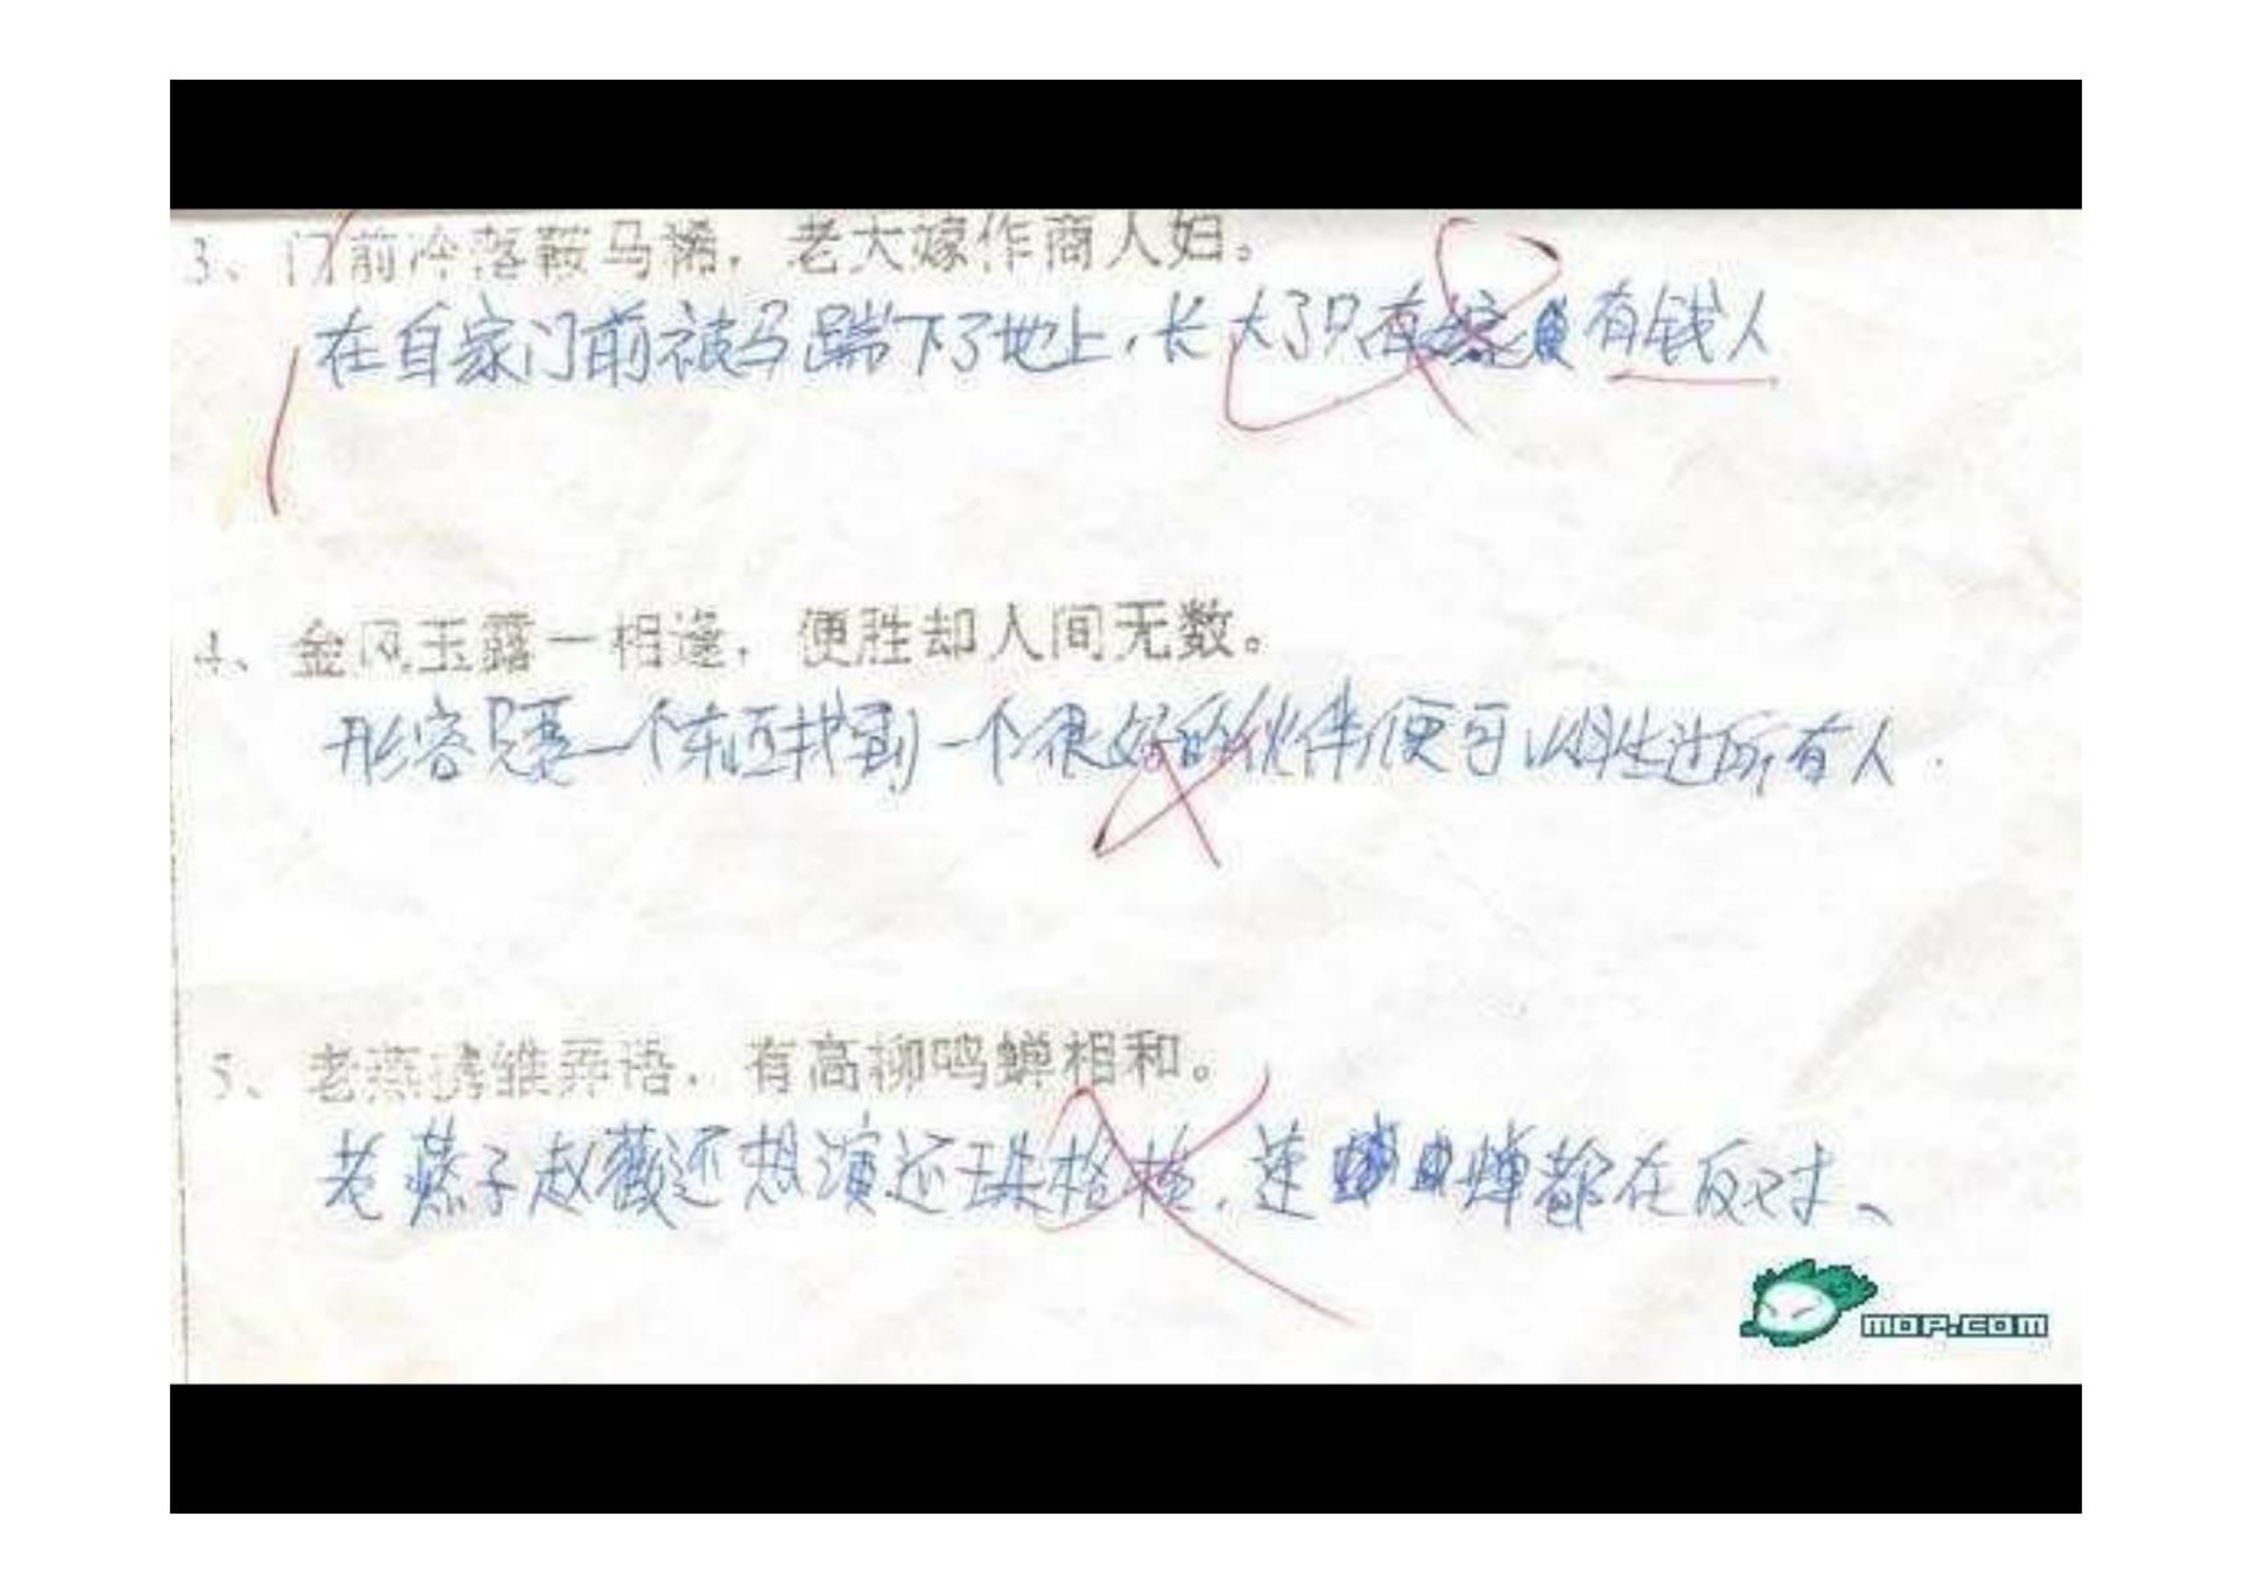 3、门前冷落鞍马稀，老大嫁作商人妇。
在自家门前被马踹下了地上，长大了只有嫁 有钱人
4、金风玉露一相逢，便胜却人间无数。
形容只要一个东西找到一个很好的伙伴便可以胜过所有人.
5、老燕携雏弄语，有高柳鸣蝉相和。
老燕子赵薇还想演还珠格格，连 蝉都在反对、
MOP.COM